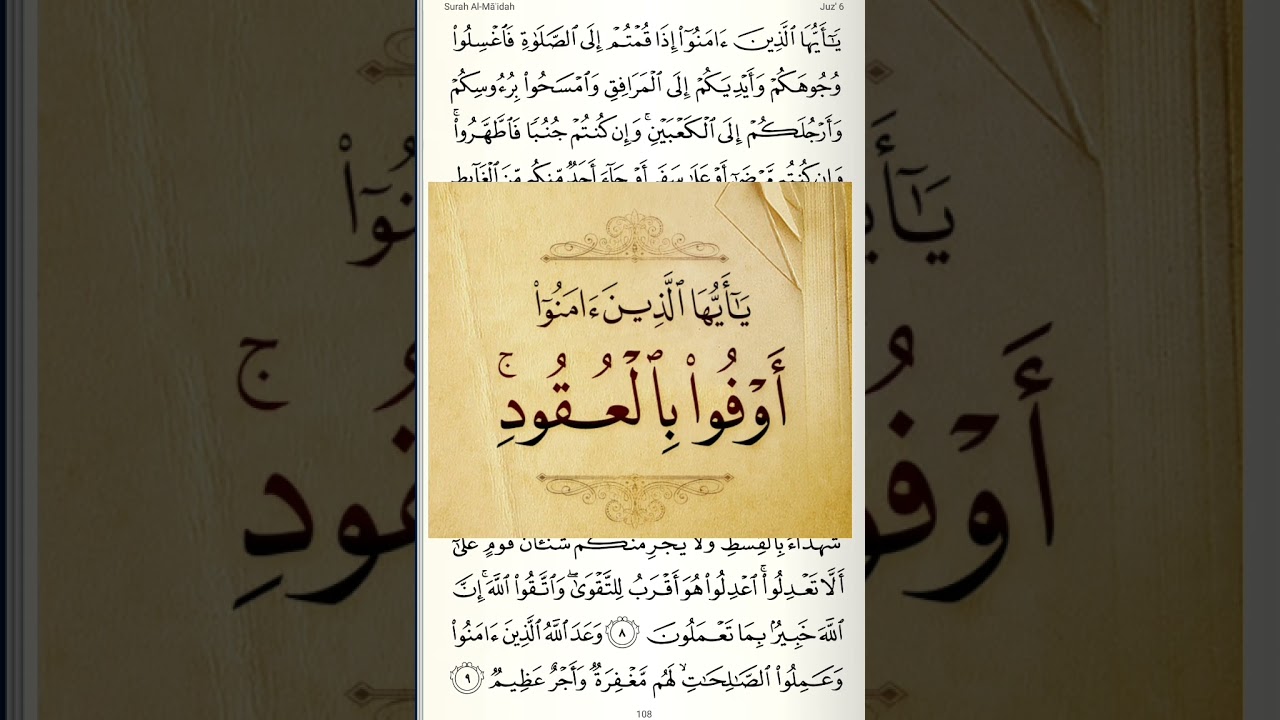 Surah Al-Mā'idah
Juz' 6
يَـٰٓأَيُّهَا ٱلَّذِينَ ءَامَنُوٓا۟ إِذَا قُمْتُمْ إِلَى ٱلصَّلَوٰةِ فَٱغْسِلُوا۟
وُجُوهَكُمْ وَأَيْدِيَكُمْ إِلَى ٱلْمَرَافِقِ وَٱمْسَحُوا۟ بِرُءُوسِكُمْ
وَأَرْجُلَكُمْ إِلَى ٱلْكَعْبَيْنِ ۚ وَإِن كُنتُمْ جُنُبًا فَٱطَّهَّرُوا۟ ۚ
وَإِن كُنتُم مَّرْضَىٰٓ أَوْ عَلَىٰ سَفَرٍ أَوْ جَآءَ أَحَدٌ مِّنكُم مِّنَ ٱلْغَآئِطِ
يَـٰٓأَيُّهَا ٱلَّذِينَ ءَامَنُوٓا۟
أَوْفُوا۟ بِٱلْعُقُودِ ۚ
شُهَدَآءَ بِٱلْقِسْطِ وَلَا يَجْرِمَنَّكُمْ شَنَـَٔانُ قَوْمٍ عَلَىٰٓ
أَلَّا تَعْدِلُوا۟ ۚ ٱعْدِلُوا۟ هُوَ أَقْرَبُ لِلتَّقْوَىٰ ۖ وَٱتَّقُوا۟ ٱللَّهَ ۚ إِنَّ
ٱللَّهَ خَبِيرٌۢ بِمَا تَعْمَلُونَ ٨ وَعَدَ ٱللَّهُ ٱلَّذِينَ ءَامَنُوا۟
وَعَمِلُوا۟ ٱلصَّـٰلِحَـٰتِ ۙ لَهُم مَّغْفِرَةٌ وَأَجْرٌ عَظِيمٌ ٩
108